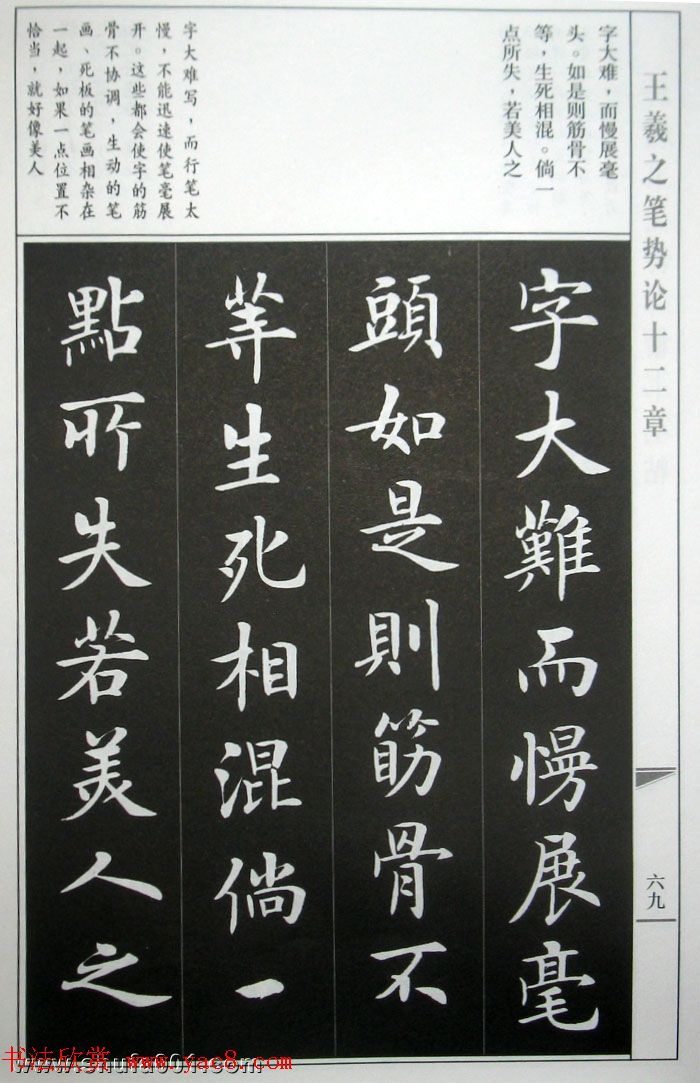 王羲之笔势论十二章
六九
字大难，而慢展毫
头。如是则筋骨不
等，生死相混。倘一
点所失，若美人之
字大难写，而行笔太
慢，不能迅速使笔毫展
开。这些都会使字的筋
骨不协调，生动的笔
画、死板的笔画相杂在
一起，如果一点位置不
恰当，就好像美人
字大難而慢展毫
頭如是則筋骨不
等生死相混倘一
點所失若美人之
书法欣赏 www.yac8.com